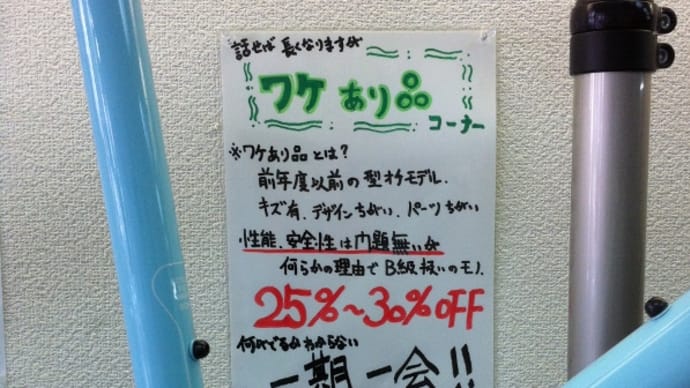 話せば長くなりますが
ワケあり品
コーナー
※ワケあり品とは？
前年度以前の型オチモデル.
キズ有.デザインちがい.パーツちがい
性能.安全性は問題無いが
何らかの理由でB級扱いのモノ.
25%～30%OFF
何がでるかわからない
一期一会!!